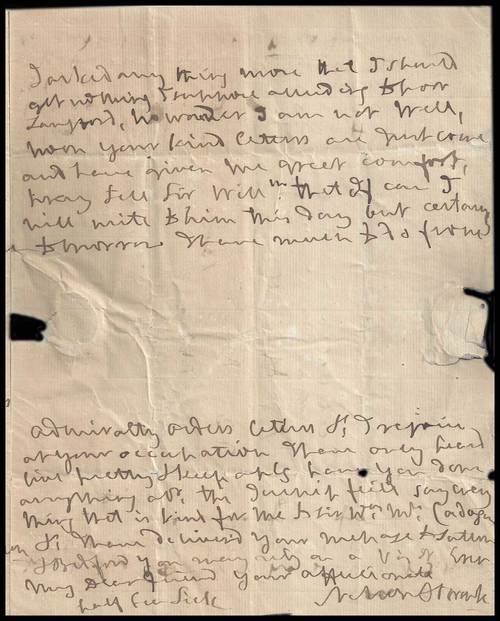 I asked any thing more that I should
get nothing I suppose alluding to poor
Langford, no wonder I am not well,
now your kind letters are just come
and have given me great comfort,
pray tell Sir Will.m that if I can I
will write to him this day but certainly
tomorrow I have much to do from
admiralty orders letters &c. I rejoice
at your occupation
live pretty & keep a have you done
anything abt. the turnip field say every
thing that is kind for me to Sir Wm. Mrs. Cadogan
&c. I have delivered your message to Sutton
& Bedford you may rely on a Visit Ever
My Dear friend your affectionate
half Sea Sick Nelson & Bronte